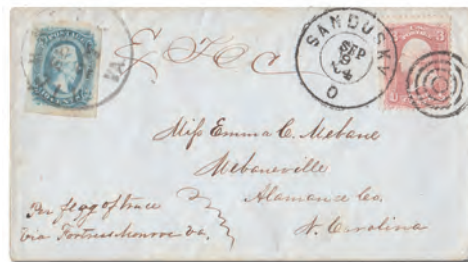 SANDUSKY
SEP
9
O
3
VA.
Miss Emma C. Mebane
Mebaneville
Alamance Co.
N. Carolina
Per flag of truce
via Fortress Monroe Va.